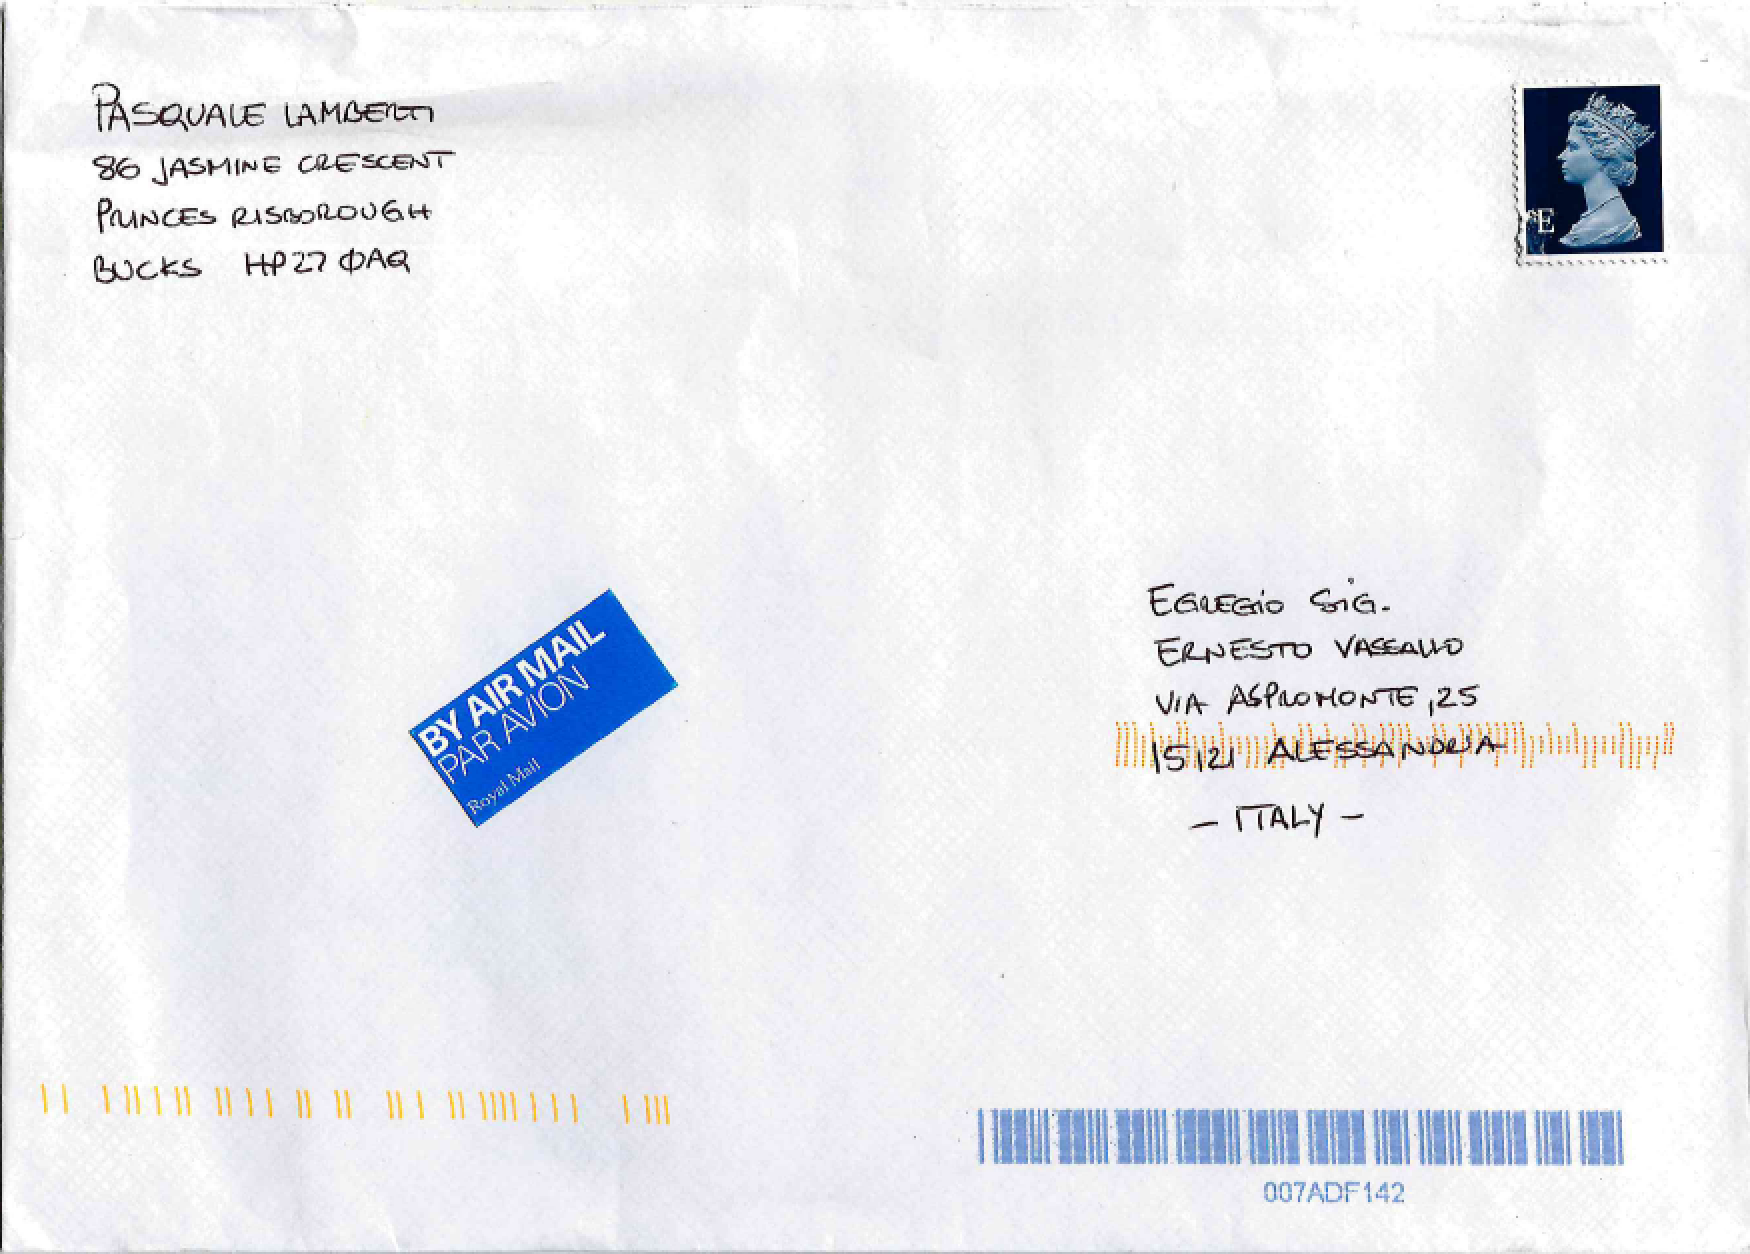 PASQUALE LAMBERTI
86 JASMINE CRESCENT
PRINCES RISBOROUGH
BUCKS HP27 0AQ
E
BY AIR MAIL
PAR AVION
Royal Mail
EGREGIO SIG.
ERNESTO VASSALLO
VIA ASPROMONTE, 25
15121 ALESSANDRIA
- ITALY -
007ADF142